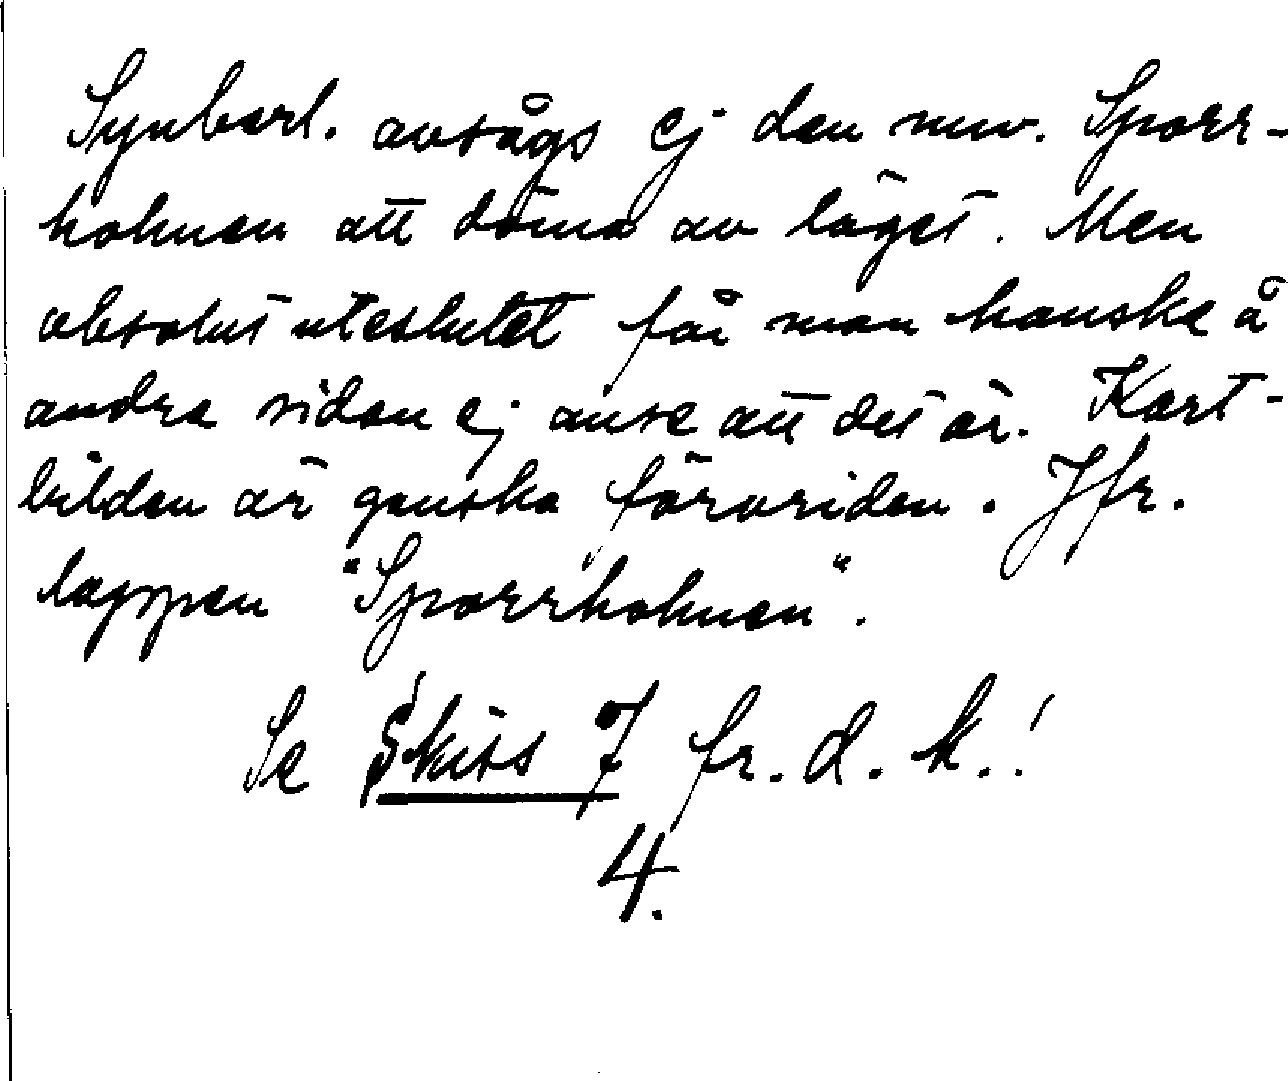 Synbarl. avsågs ej den nuv. Sporr-
holmen att döma av läget. Men
absolut uteslutet får man kanske å
andra sidan ej anse att det är. Kart-
bilden är ganska förvriden. Jfr.
lappen "Sporrholmen".
Se Skiss 7 fr. d. k.!
4.